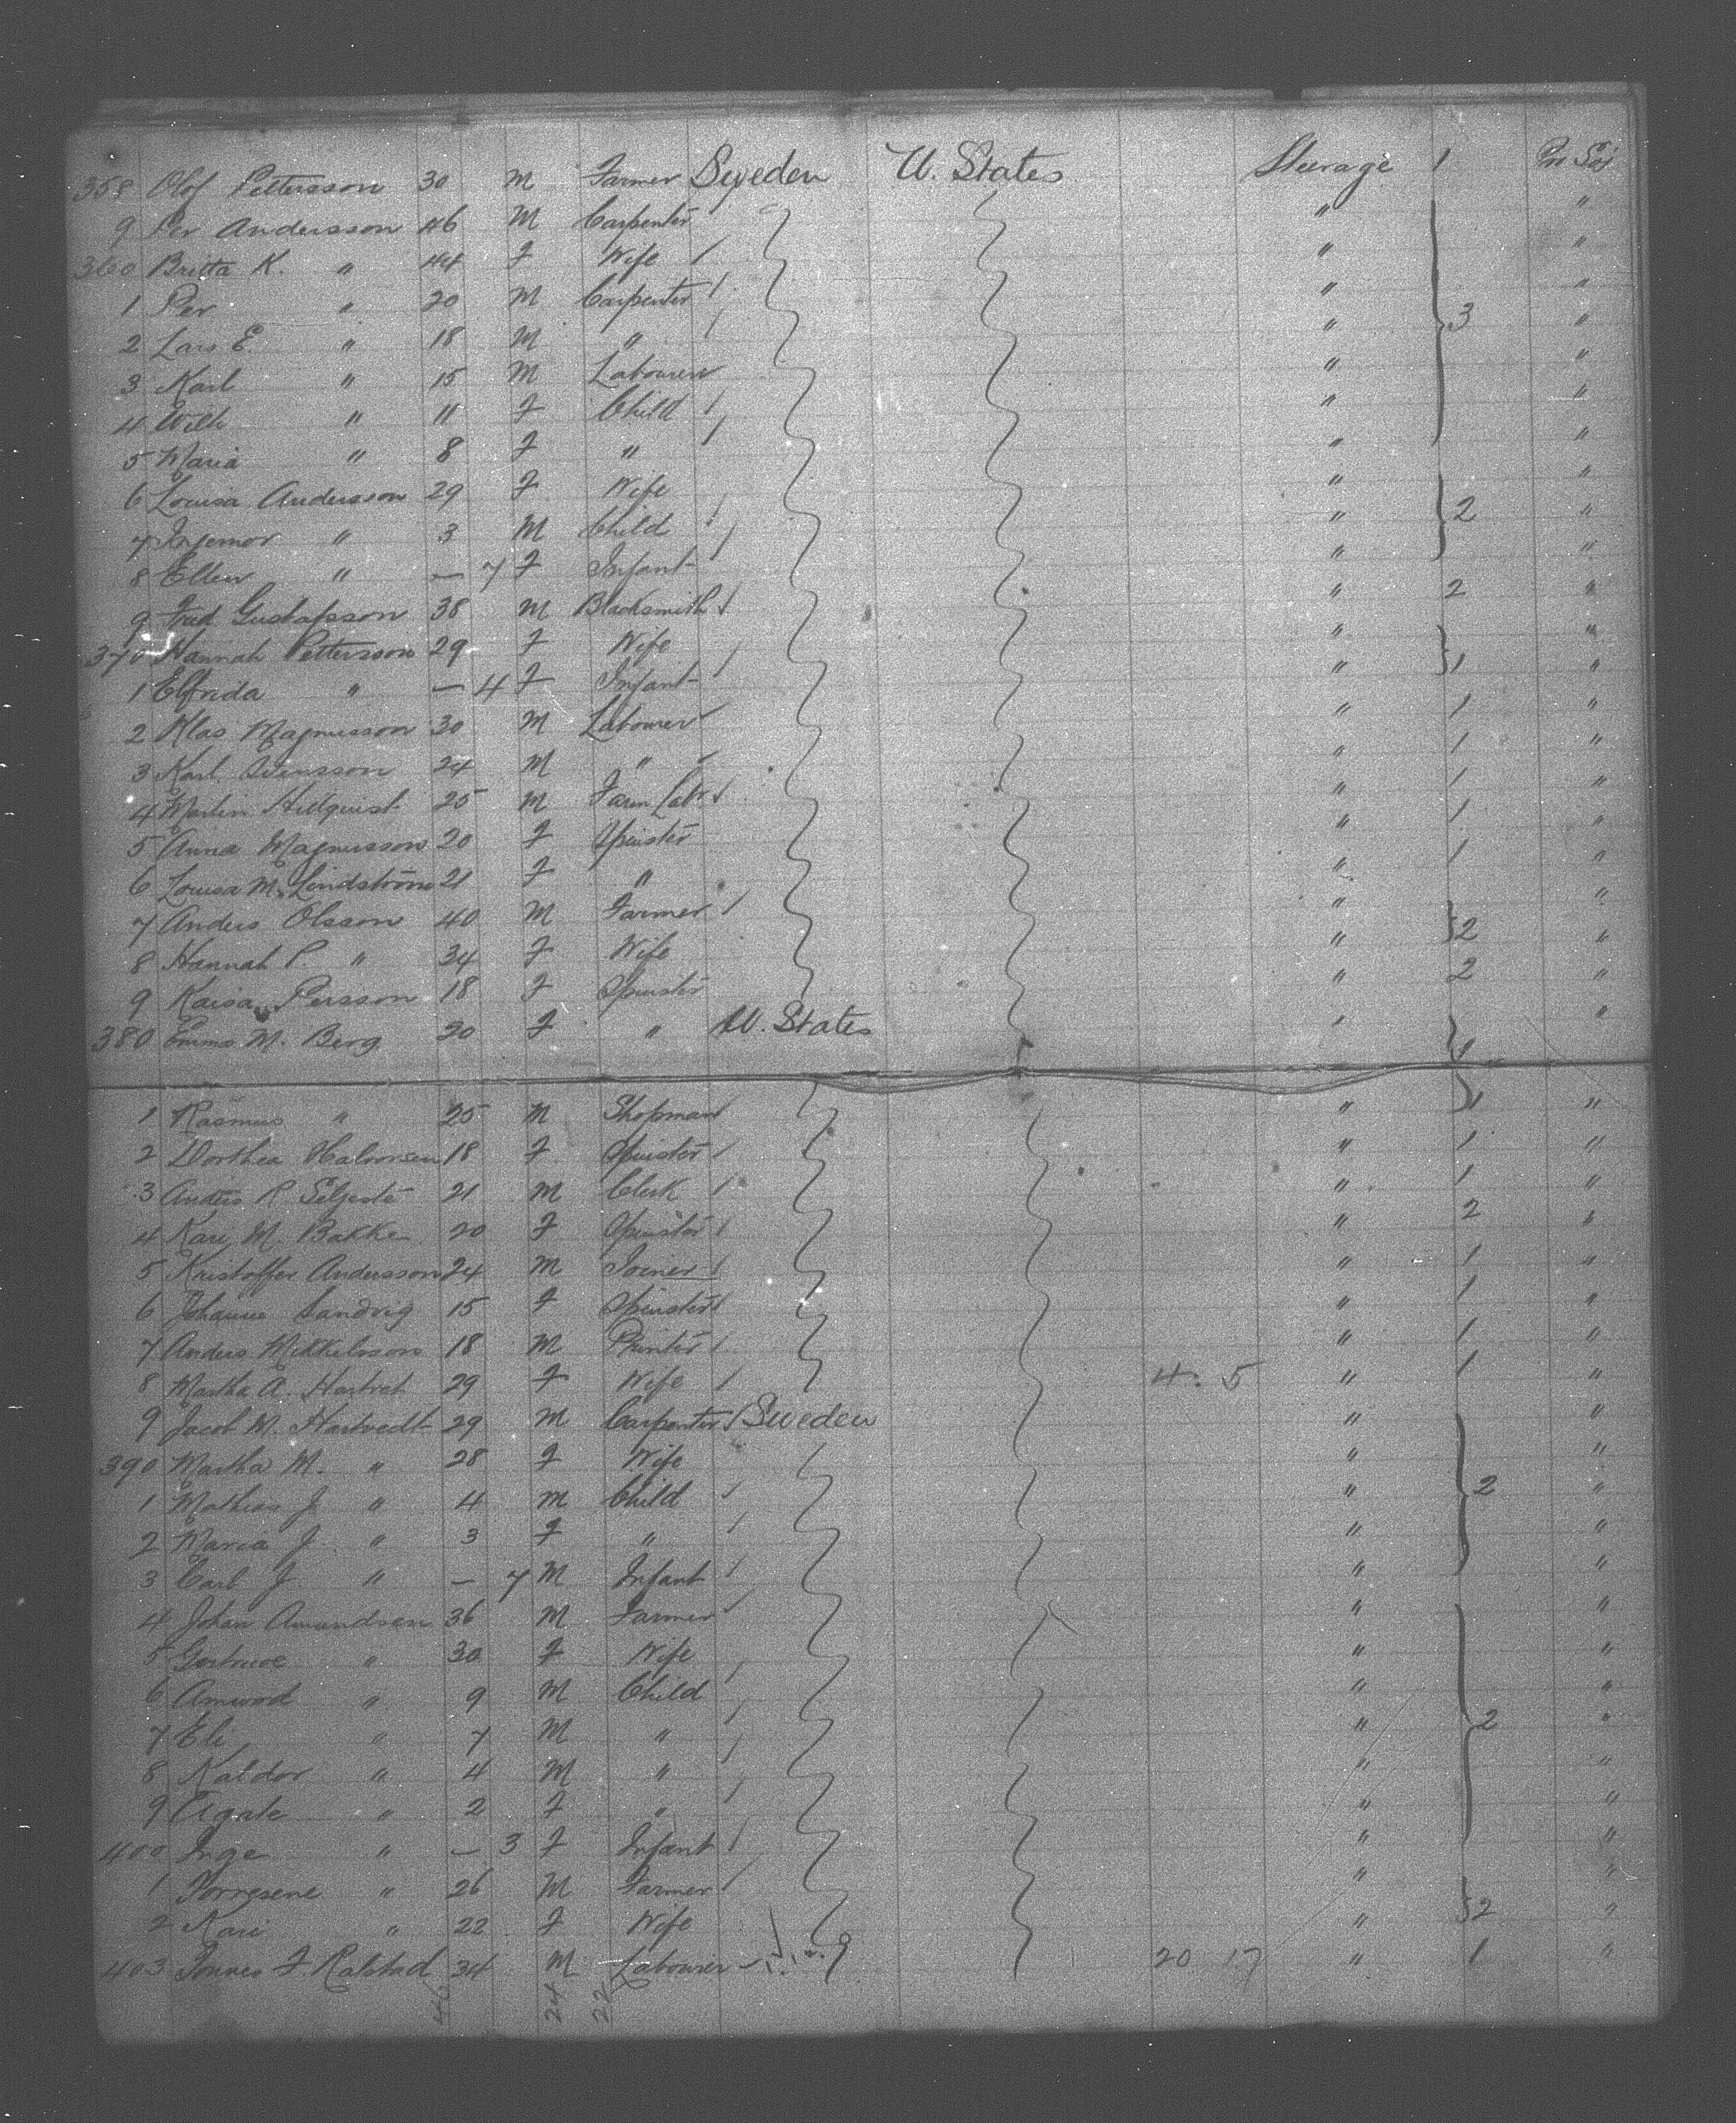 358 Olof Pettersson 30 M Farmer Sweden U. States Steerage 1
9 Per Andersson 46 M Carpenter "
360 Britta K. " 44 F Wife "
1 Per " 20 M Carpenter "
2 Lars E. " 18 M " " 3
3 Karl " 15 M Labourer "
4 Wilh " 11 F Child "
5 Maria " 8 F " "
6 Louisa Andersson 29 F Wife "
7 Ingemor " 3 M Child " 2
8 Ellen " — 7 F Infant "
9 Fred Gustafsson 38 M Blacksmith " 2
370 Hannah Pettersson 29 F Wife "
1 Elfrida " — 4 F Infant " 1
2 Klas Magnusson 30 M Labourer " 1
3 Karl Svensson 24 M " " 1
4 Martin Hellquist 25 M Farm Labr " 1
5 Anna Magnusson 20 F Spinster " 1
6 Louisa M. Lindström 21 F " " 1
7 Anders Olsson 40 M Farmer "
8 Hannah P. " 34 F Wife " 2
9 Kaisa Persson 18 F Spinster " 2
380 Emma M. Berg 20 F " U. States "
1 Rasmus " 25 M Shopman " "
2 Dorthea Halvorsen 18 F Spinster " 1 "
3 Anders R 21 M Clerk " 1 "
4 Kari M. Bakke 20 F Spinster " 2 "
5 Kristoffer Andersson 24 M Joiner " 1 "
6 Johanne Sandvig 15 F Spinster " 1 "
7 Anders Mikkelsson 18 M Printer " 1 "
8 Martha A. 29 F Wife 4. 5 " 1 "
9 Jacob M. Hartvedt 29 M Carpenter Sweden " "
390 Martha M. " 28 F Wife " "
1 Mathias J " 4 M Child " 2 "
2 Maria J. " 3 F " " "
3 Carl J. " — 7 M Infant " "
4 Johan Amundsen 36 M Farmer " "
5 " 30 F Wife " "
6 Amwod " 9 M Child " "
7 Eli " 7 M " " 2 "
8 Kaldor " 4 M " " "
9 Agate " 2 F " " "
400 Inge " — 3 F Infant " "
1 Torresene " 26 M Farmer " "
2 Kari " 22 F Wife " 2 "
403 Tonnes F. Ralstad 34 M Labourer 20 17 " 1 "
24 22